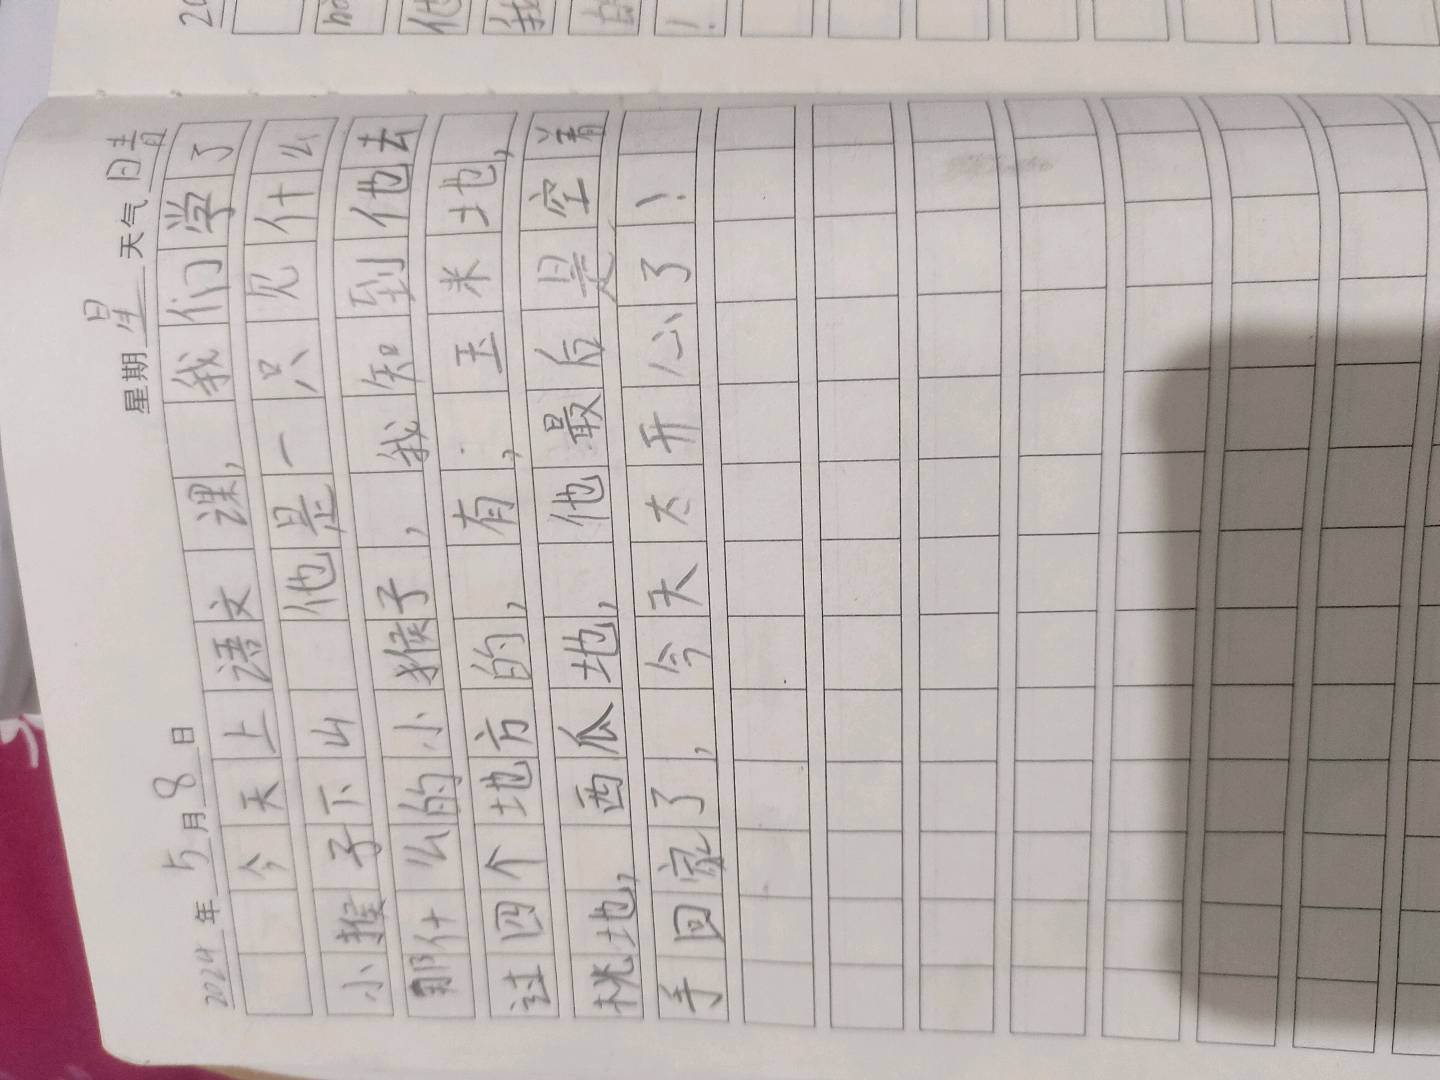 2024年5月8日 星期星 天气晴
今天上语文课,我们学了
小猴子下山 他是一只见什么
那什么的小猴子,我知到他去
过四个地方的,有:,玉米地,
桃地,西瓜地,他最后是空着
手回家了,今天太开心了!